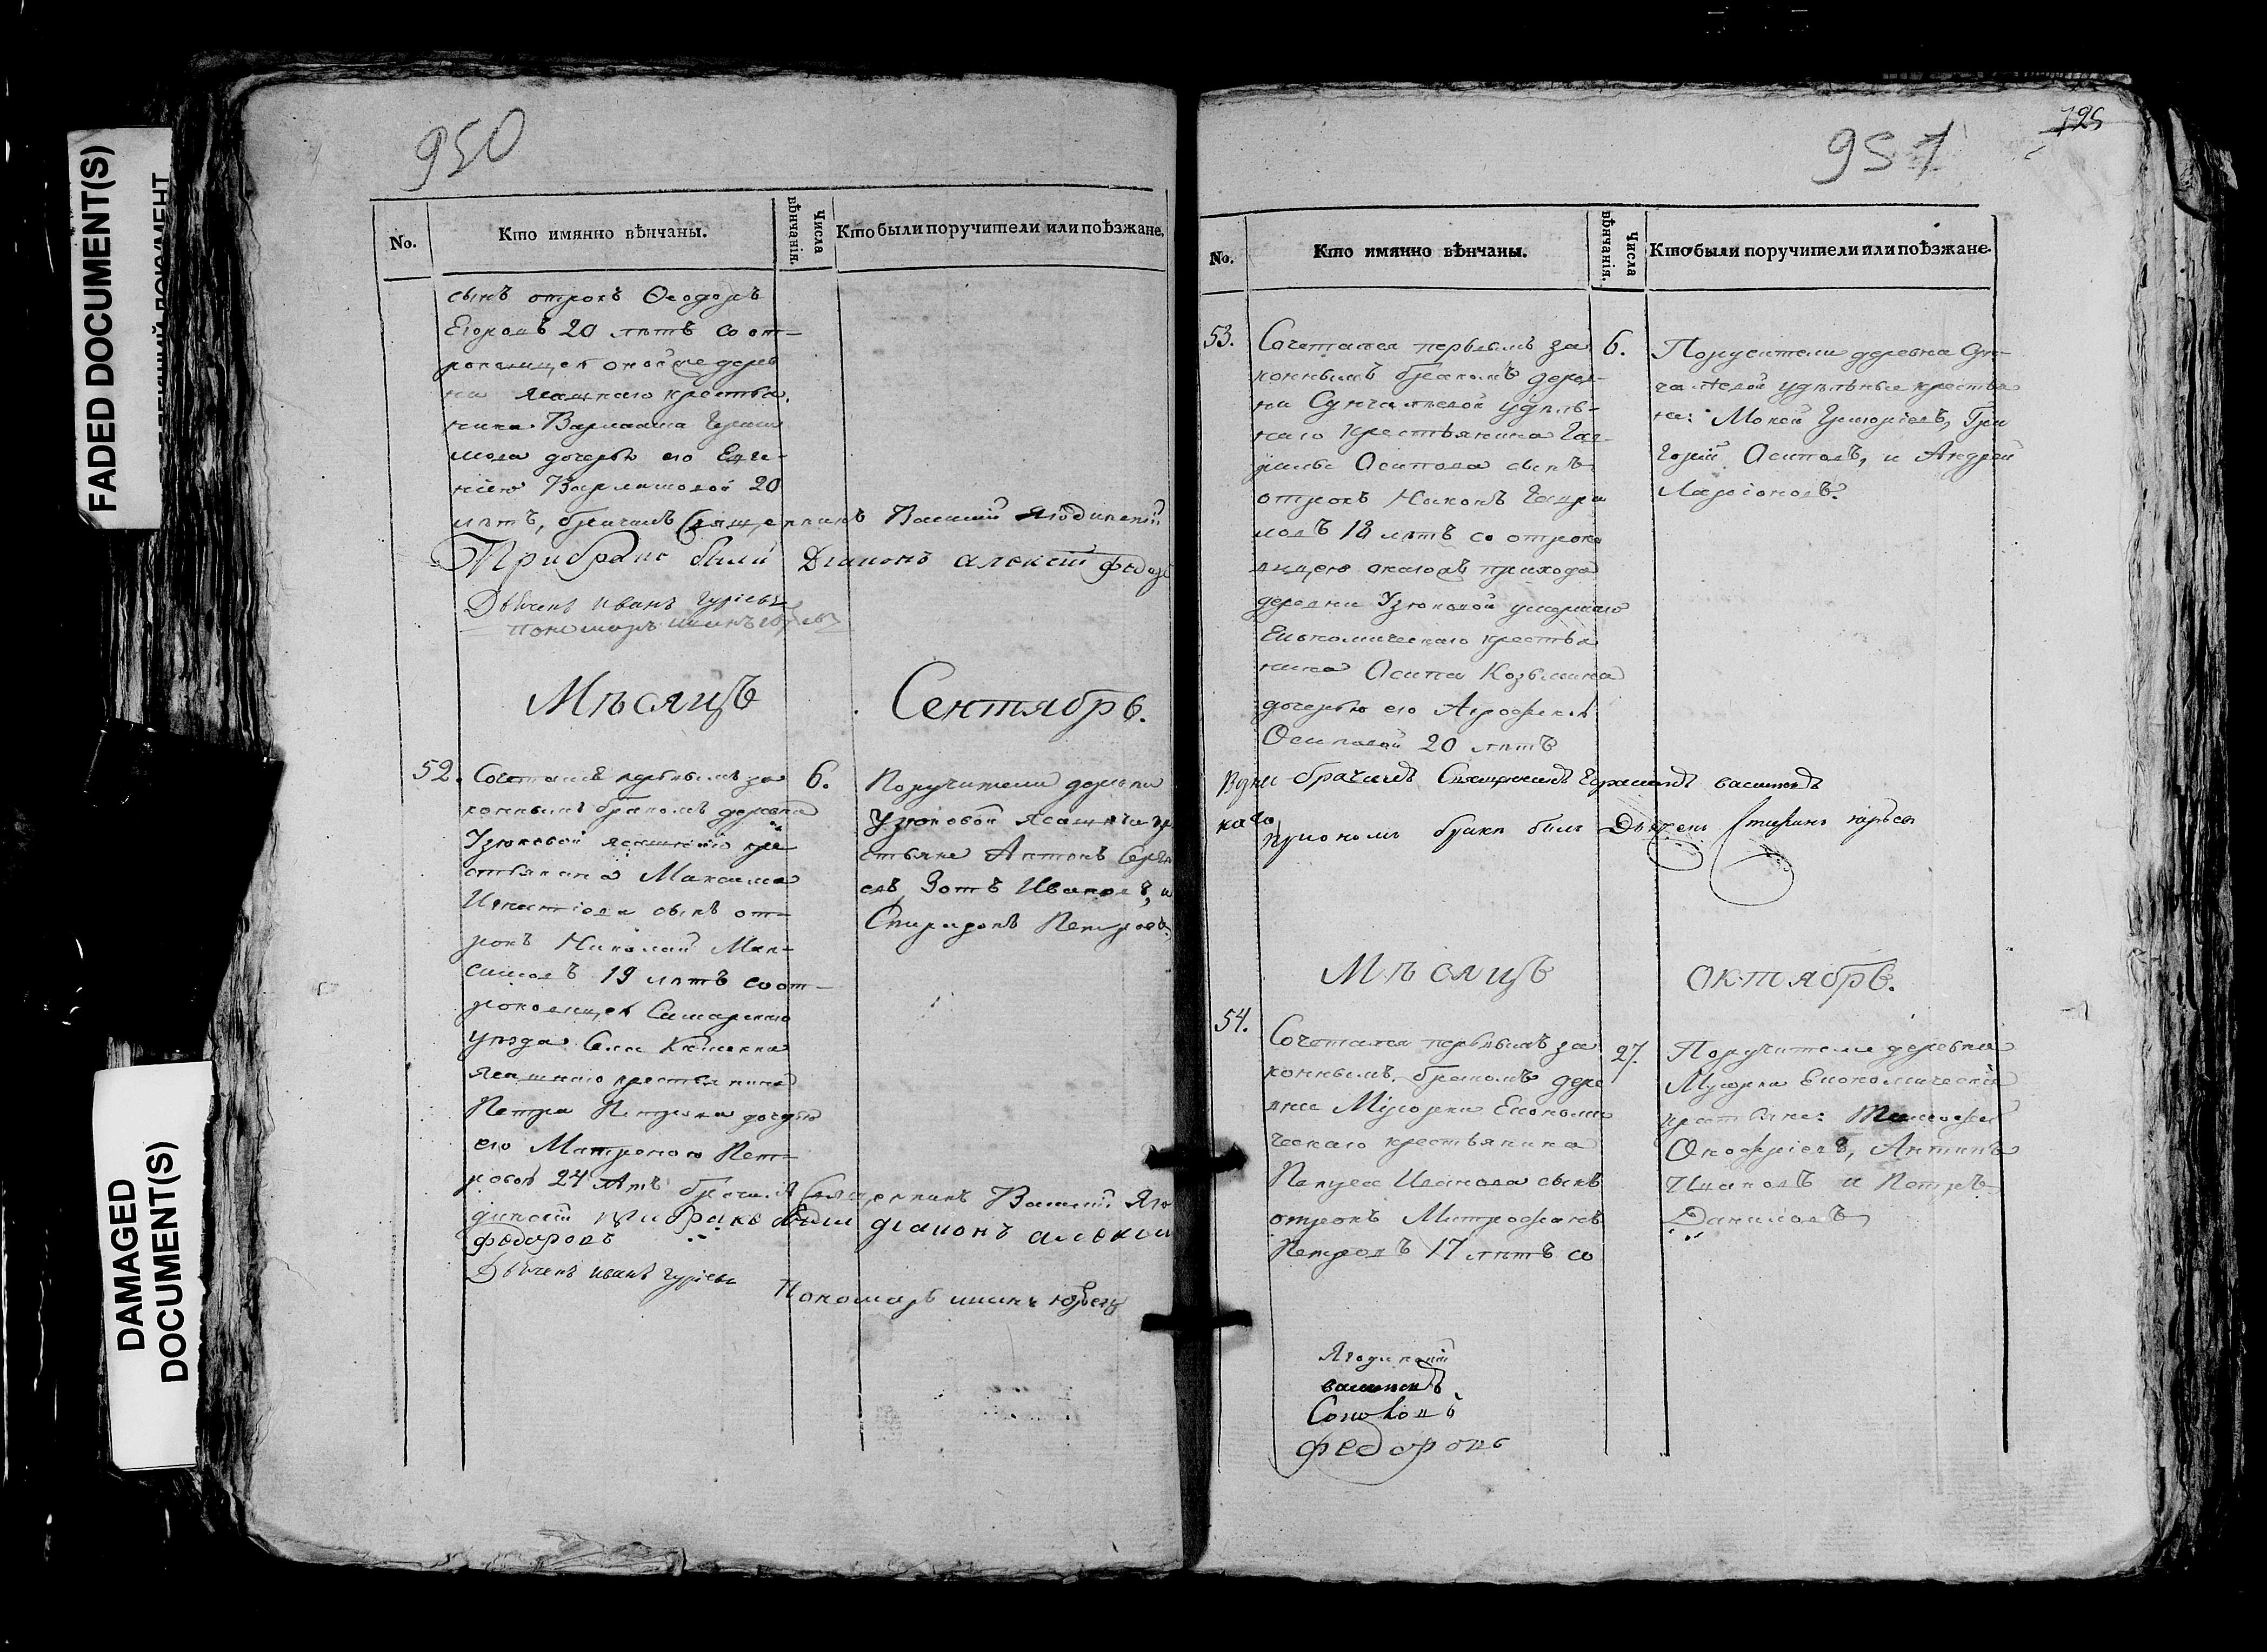 FADED DOCUMENT(S)
DAMAGED
DOCUMENT(S)
950
No.
Кто имянно вѣнчаны.
Числа
вѣнчанія.
Кто были поручители или поѣзжане.
сынъ отрокъ Ѳеодоръ
Егоровъ 20 лѣтъ со от-
роковицею оной же дерев
ни ясашнаго крестья
нина Варлаама
дочерью его
20
лѣтъ, бракчалъ Священникъ Василий Ягодинский
При браке были Диаконъ алексей Федоро
Дьячекъ иванъ гурьевъ
пономарь
Мѣсяцъ Сентябрь.
52.
Сочетался первымъ за
коннымъ бракомъ деревни
Узюковой ясашнаго кре
стьянина Максима
сынъ от-
рокъ Николай Мак-
симовъ 19 лѣтъ со от-
роковицею Самарскаго
уѣзда Села
ясашнаго крестьянина
Петра Петрова дочерью
его Матроною Пет-
ровой 24 лѣтъ Священникъ Василий Яго
динской при браке были диаконъ алексей
федоровъ
Дьячекъ иванъ гурьевъ
Пономарь
6.
Поручители деревни
Узюковой Ясашные кре
стьяне Антонъ Серге
евъ, Зотъ Ивановъ, и
Спиридонъ Петровъ
951
725
No.
Кто имянно вѣнчаны.
Числа
вѣнчанія.
Кто были поручители или поѣзжане.
53.
Сочетался первымъ за
коннымъ бракомъ дерев-
ни Сунчалѣевой удѣль-
наго крестьянина Гав-
рилы Осипова сынъ
отрокъ Никонъ Гаври
ловъ 18 лѣтъ со отроко
вицею онаго же прихода
деревни Узюковой
Економическаго крестья
нина Осипа Козьмина
дочерью его Агрофеною
Осиповой 20 лѣтъ
6.
Поручители деревни Сун-
чалѣевой удѣльные крестья
не: Мокей Григорьевъ, Гри
горий Осиповъ, и Андрей
Ларионовъ.
Священникъ Герасимъ васильевъ
при ономъ браке былъ Дьячекъ
Мѣсяцъ октябрь.
54.
Сочетался первымъ за
коннымъ бракомъ дере
вни Мусорки Економи
ческаго крестьянина
Петра Иванова сынъ
отрокъ Митрофанъ
Петровъ 17 лѣтъ со
27.
Поручители деревни
Мусорки Економические
крестьяне: Тимофей
Онофриевъ, Антипъ
Ивановъ и Петръ
Даниловъ
Ягодинский
васильевъ
федоровъ